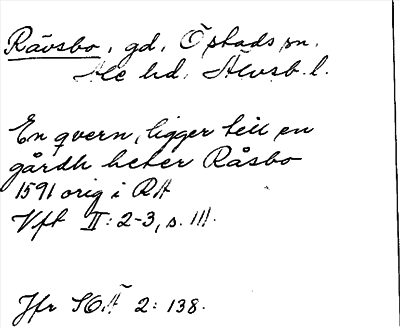 Rävsbo, gd, Östads sn.
Ale hd. Älvsb. l.
En qvern, ligger till en
gårdh heter Råsbo
1591 orig i RA
Vft II: 2-3, s. 111.
Jfr SOÄ 2: 138.